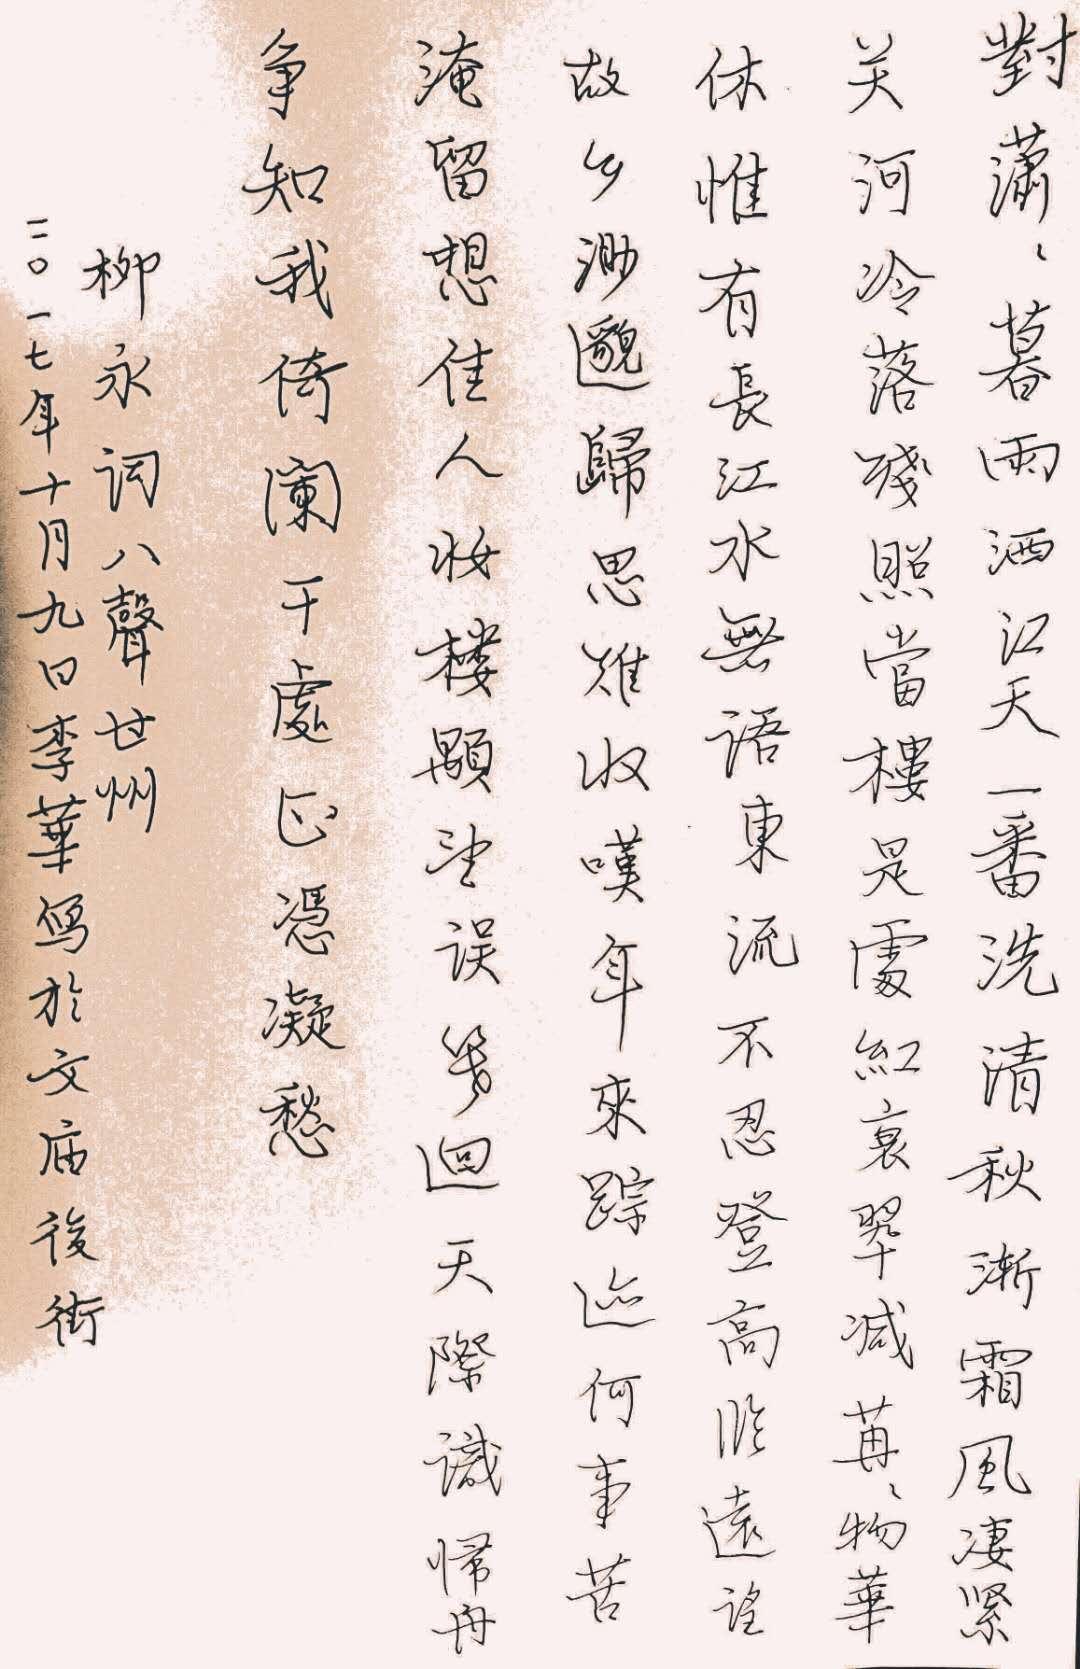 對瀟〻暮雨洒江天一番洗清秋漸霜風凄緊
关河冷落殘照當樓是處紅衰翠减苒〻物華
休惟有長江水無語東流不忍登高临遠望
故乡渺邈歸思难收嘆年來踪迹何事苦
淹留想佳人妆楼顒望误幾迴天際識帰舟
争知我倚阑干處正憑凝愁
柳永词八聲甘州
二〇一七年十月九日李華写於文庙後街